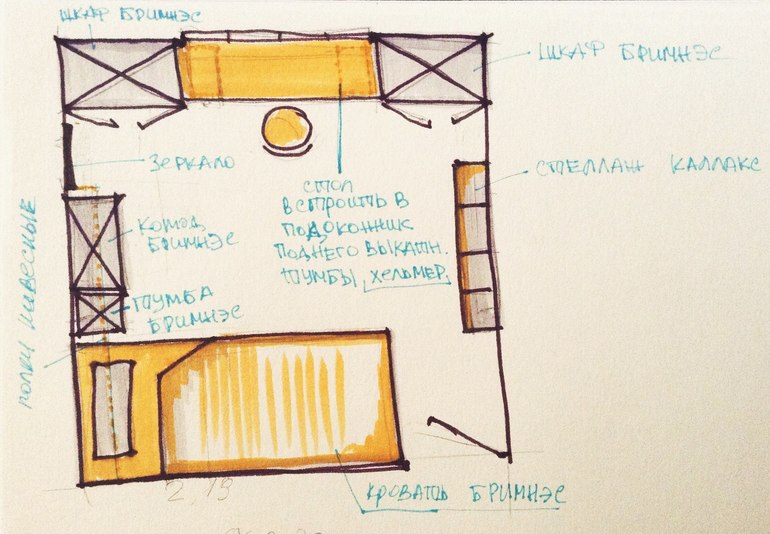 ШКАФ БРИМНЭС
ШКАФ БРИМНЭС
ЗЕРКАЛО
СТЕЛЛАЖ КАЛЛАКС
СТОЛ
ВСТРОИТЬ В
ПОДОКОННИК
ПОД НЕГО ВЫКАТН.
ТУМБЫ, ХЕЛЬМЕР
КОМОД
БРИМНЭС
ТУМБА
БРИМНЭС
ПОЛКИ НАВЕСНЫЕ
2,19
КРОВАТЬ БРИМНЭС